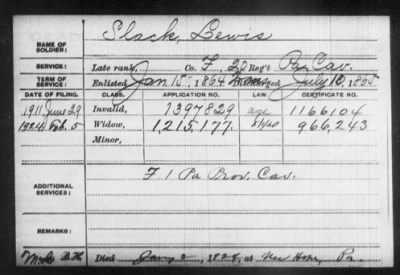 NAME OF SOLDIER: Slack, Lewis
SERVICE: Late rank, Co. F, 20 Reg't Pa Cav.
TERM OF SERVICE: Enlisted Jan. 15, 1864 Discharged July 13, 1865
DATE OF FILING. CLASS. APPLICATION NO. LAW. CERTIFICATE NO.
1911 June 29 Invalid, 1397829 age 1166104
1924 Feb. 5 Widow, 1,215,177. 966,243
Minor,
ADDITIONAL SERVICES: F. 1 Pa Prov. Cav.
REMARKS:
Died Jany 2, 1924, at New Hope, Pa.